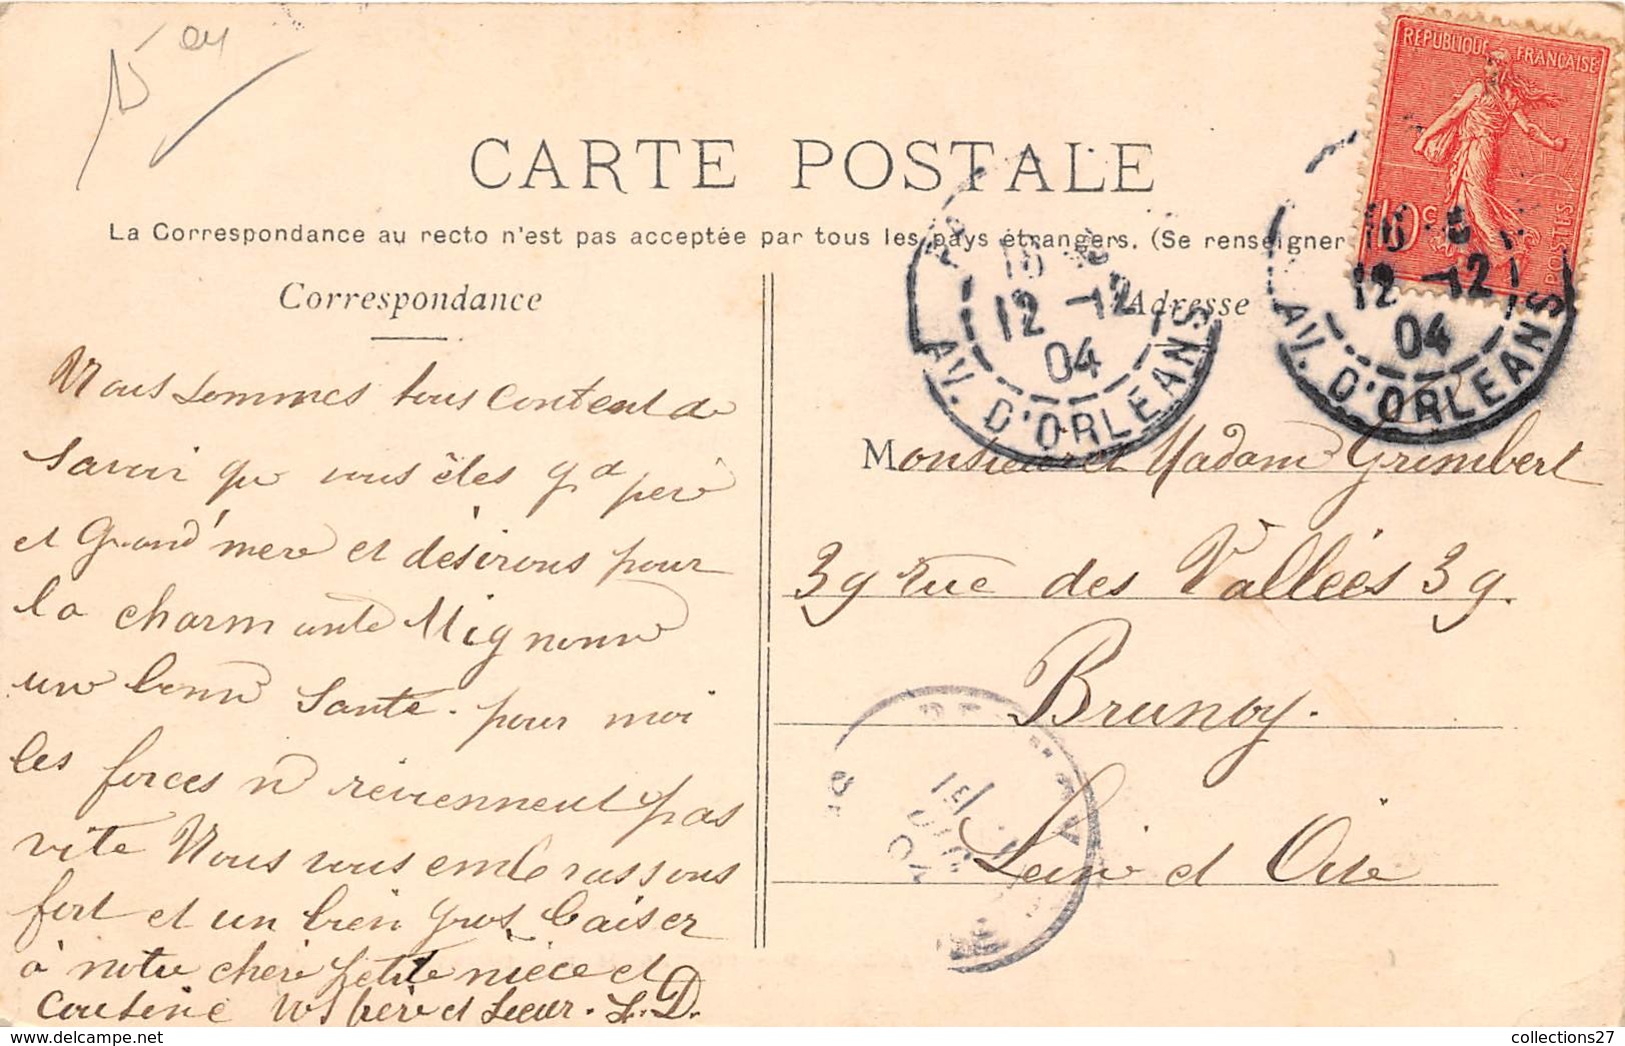 CARTE POSTALE
La Correspondance au recto n'est pas acceptée par tous les pays étrangers. (Se renseigner
Correspondance
Nous sommes tous content de
savoir que vous êtes gd père
et Grand'mère et désirons pour
la charmante Mignonne
une bonne Santé. pour moi
les forces ne reviennent pas
vite Nous vous embrassons
fort et un bien gros baiser
à notre chère petite nièce et
Cousine vos frère et Sœur. L. D.
RÉPUBLIQUE FRANÇAISE
10c
POSTES
16
12 -12
04
AV. D'ORLEANS
16
12 -12
04
AV. D'ORLEANS
Adresse
Monsieur et Madame Grimbert
39 rue des Vallées 39.
Brunoy.
Seine et Oise
04
collections27